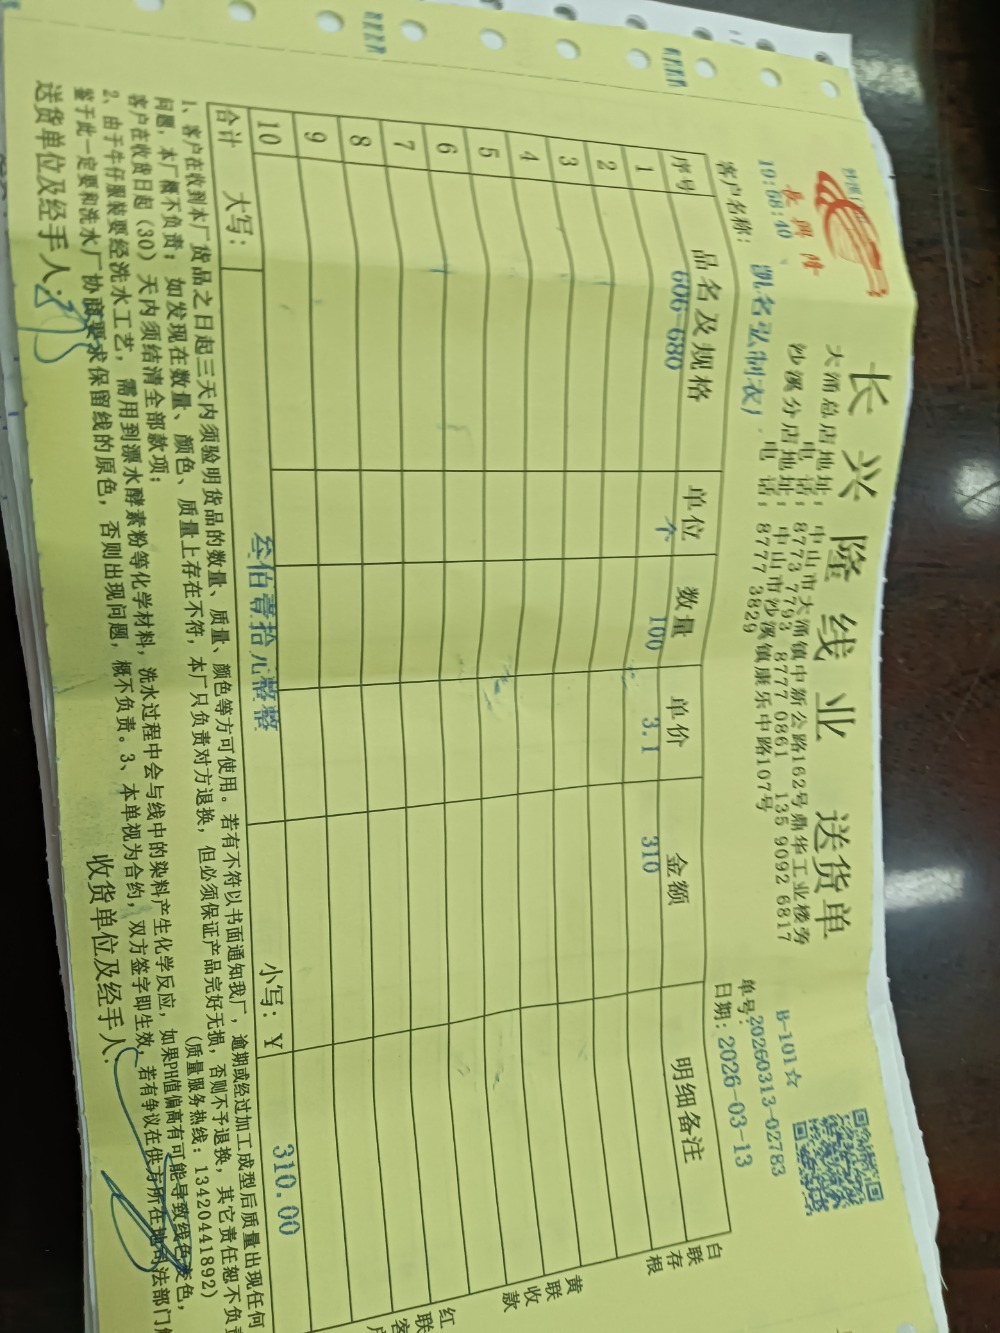 长兴隆线业 送货单
長興隆
大涌总店地址：中山市大涌镇中新公路162号鼎华工业楼旁
电话：8773 7793 8777 0861 135 9092 6817
沙溪分店地址：中山市沙溪镇康乐中路107号
电话：8777 3829
19:58:40
B-101☆
单号：20260313-02783
客户名称：凯名弘制衣厂
日期：2026-03-13
序号 品名及规格 单位 数量 单价 金额 明细备注
1 606-680 个 100 3.1 310
2
3
4
5
6
7
8
9
10
合计 大写：叁佰壹拾元整整 小写：¥ 310.00
白联存根
黄联收款
红联客户
1、客户在收到本厂货品之日起三天内须验明货品的数量、质量、颜色等方可使用。若有不符以书面通知我厂，逾期或经过加工成型后质量出现任何
问题，本厂概不负责；如发现在数量、颜色、质量上存在不符，本厂只负责对方退换，但必须保证产品完好无损，否则不予退换，其它责任恕不负责
客户在收货日起（30）天内须结清全部款项；
(质量服务热线：13420441892)
2、由于牛仔服装要经洗水工艺，需用到漂水酵素粉等化学材料，洗水过程中会与线中的染料产生化学反应，如果PH值偏高有可能导致线色变色，
鉴于此一定要和洗水厂协商要求保留线的原色，否则出现问题，概不负责。3、本单视为合约，双方签字即生效，若有争议在供方所在地司法部门
送货单位及经手人：
收货单位及经手人：